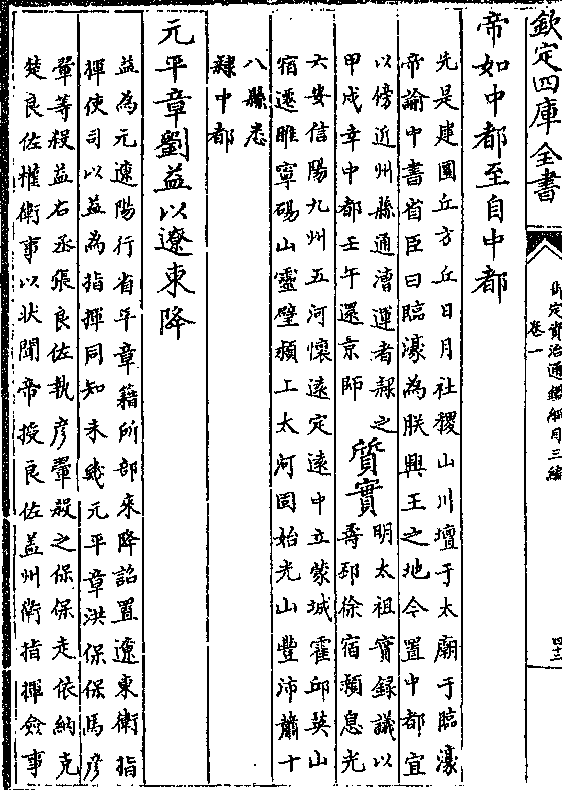 欽定四庫全書
御定資治通鑑綱目三編
卷一
四十二
帝如中都至自中都
先是建圜丘方丘日月社稷山川壇于太廟于臨濠
帝諭中書省臣曰臨濠為朕興王之地今置中都宜
以傍近州縣通漕運者隸之
甲戌幸中都壬午還京師
質實
明太祖實録議以
壽邳徐宿頴息光
六安信陽九州五河懷遠定遠中立蒙城霍邱英山
宿遷睢寧碭山靈璧頴上太河固始光山豐沛蕭十
八縣悉
隸中都
元平章劉益以遼東降
益為元遼陽行省平章籍所部來降詔置遼東衛指
揮使司以益為指揮同知未幾元平章洪保保馬彦
翬等殺益右丞張良佐執彦翬殺之保保走依納克
楚良佐權衛事以狀聞帝授良佐益州衛指揮僉事